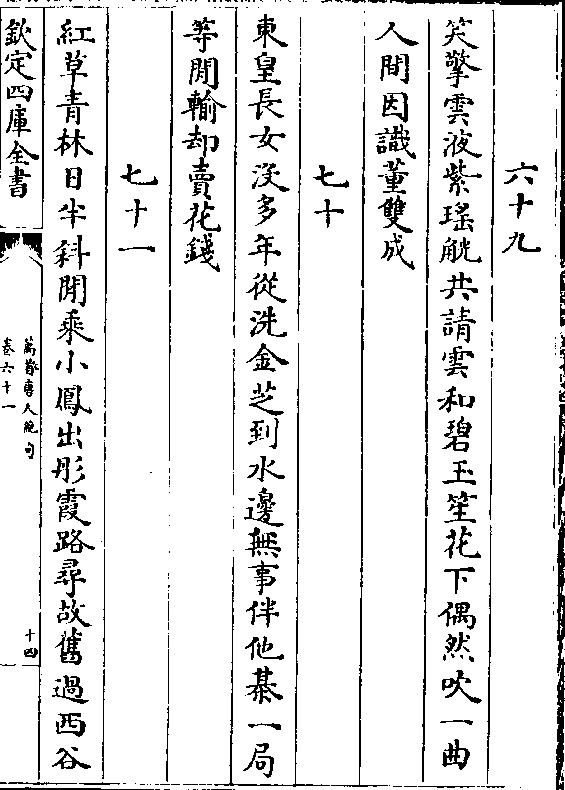 六十九
笑擎雲液紫瑤觥共請雲和碧玉笙花下偶然吹一曲
人間因識董雙成
七十
東皇長女沒多年從洗金芝到水邊無事伴他棊一局
等閒輸却賣花錢
七十一
紅草青林日半斜閒乘小鳳出彤霞路尋故舊過西谷
欽定四庫全書
萬首唐人絶句
卷六十一
十四